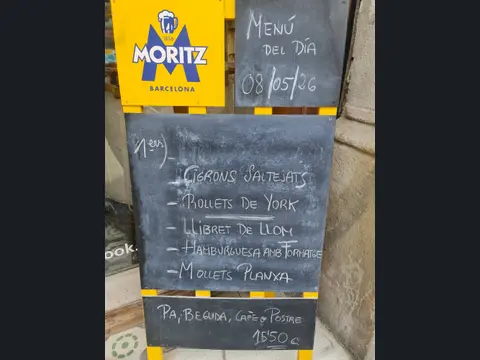 MORITZ
BARCELONA
MENÚ
DEL DÍA
08/05/26
1ers)
- CIGRONS SALTEJATS
- ROLLETS DE YORK
- LLIBRET DE LLOM
- HAMBURGUESA AMB FORMATGE
- MOLLETS PLANXA
ook.
PA, BEGUDA, CAFÈ o POSTRE
15'50€